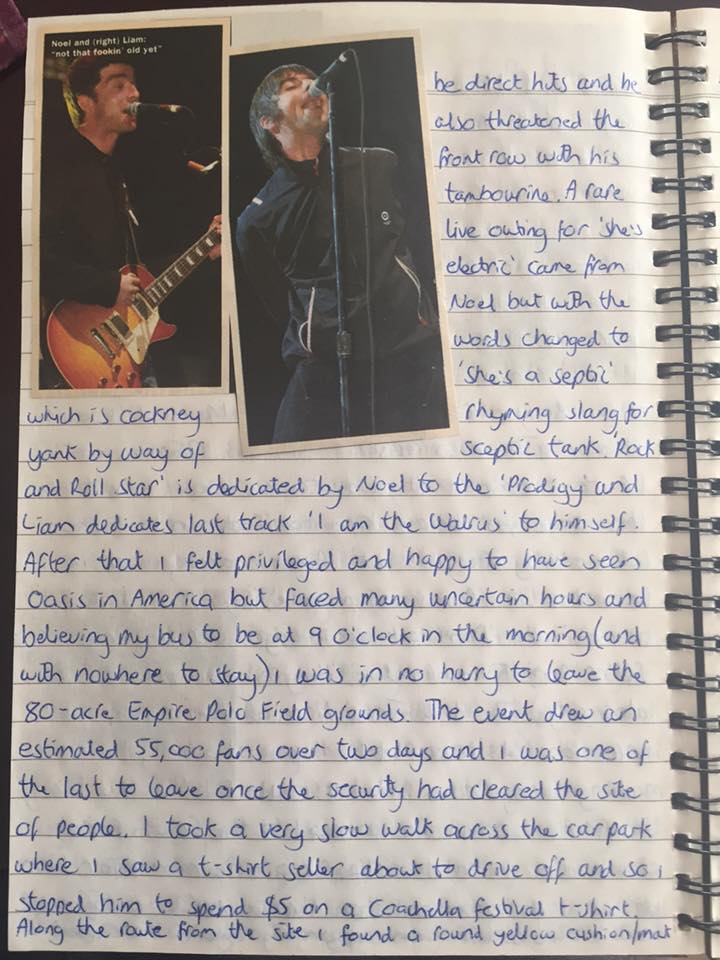 Noel and (right) Liam:
"not that fookin' old yet"
be direct hits and he
also threatened the
front row with his
tambourine. A rare
live outing for 'she's
electric' came from
Noel but with the
words changed to
'she's a septic'
which is cockney rhyming slang for
yank by way of sceptic tank. 'Rock
and Roll Star' is dedicated by Noel to the 'Prodigy' and
Liam dedicates last track 'I am the Walrus' to himself.
After that I felt privileged and happy to have seen
Oasis in America but faced many uncertain hours and
believing my bus to be at 9 O'clock in the morning (and
with nowhere to stay) I was in no hurry to leave the
80-acre Empire Polo Field grounds. The event drew an
estimated 55,000 fans over two days and I was one of
the last to leave once the security had cleared the site
of people. I took a very slow walk across the car park
where I saw a t-shirt seller about to drive off and so I
stopped him to spend $5 on a Coachella festival t-shirt.
Along the route from the site I found a round yellow cushion/mat